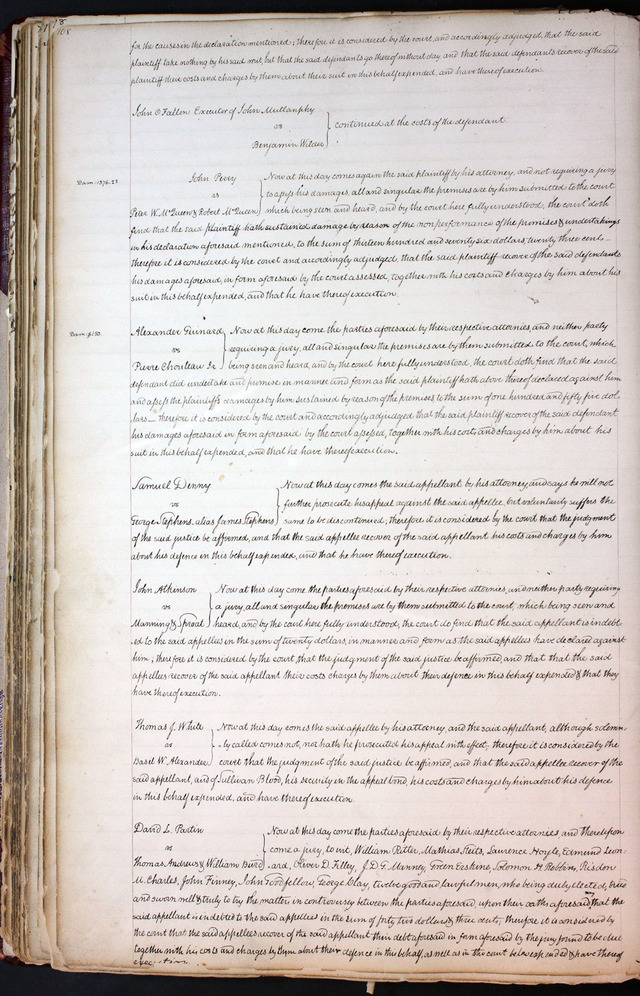 108
for the causes in the declaration mentioned; therefore it is considered by the court, and accordingly adjudged, that the said
plaintiff take nothing by his said writ, but that the said defendants go thereof without day, and that the said defendants recover of the said
plaintiff their costs and charges by them about their suit in this behalf expended, and have thereof execution.
John O Fallon Executor of John Mullanphy
vs
Benjamin Wilder
continued at the costs of the defendant
Dam. 1376.23
John Perry
vs
Peter W. McQueen & Robert McQueen
Now at this day comes again the said plaintiff by his attorney, and not requiring a jury
to assess his damages, all and singular the premises are by him submitted to the court
which being seen and heard, and by the court here fully understood, the court doth
find that the said plaintiff hath sustained damage by reason of the nonperformance of the premises & undertakings
in his declaration aforesaid mentioned, to the sum of thirteen hundred and seventy six dollars, twenty three cent—
therefore it is considered by the court and accordingly adjudged, that the said plaintiff recover of the said defendants
his damages aforesaid, in form aforesaid by the court assessed, together with his costs and charges by him about his
suit in this behalf expended, and that he have thereof execution.
Alexander
vs
Pierre Chouteau Jr
Now at this day come the parties aforesaid by their respective attornies, and neither party
requiring a jury, all and singular the premises are by them submitted to the court, which
being seen and heard, and by the court here fully understood, the court doth find that the said
defendant did undertake and promise in manner and form as the said plaintiff hath above thereof declared against him
and assess the plaintiff's damages by him sustained by reason of the premises to the sum of one hundred and fifty five dol
lars— therefore it is considered by the court and accordingly adjudged that the said plaintiff recover of the said defendant
his damages aforesaid in form aforesaid by the court assessed, together with his costs and charges by him about his
suit in this behalf expended, and that he have thereof execution.
Samuel Denny
vs
George Stephens, alias James Stephens
Now at this day comes the said appellant by his attorney and says he will not
further prosecute his appeal against the said appellee, but voluntarily suffers the
same to be discontinued; therefore it is considered by the court that the judgment
of the said justice be affirmed, and that the said appellee recover of the said appellant his costs and charges by him
about his defence in this behalf expended, and that he have thereof execution.
John Atkinson
vs
Manning & Sproat
Now at this day come the parties aforesaid by their respective attornies, and neither party requiring
a jury, all and singular the premises are by them submitted to the court, which being seen and
heard, and by the court here fully understood, the court do find that the said appellant is indebt
ed to the said appellees in the sum of twenty dollars, in manner and form as the said appellees have declared against
him; therefore it is considered by the court that the judgment of the said justice be affirmed, and that that the said
appellees recover of the said appellant their costs charges by them about their defence in this behalf expended & that they
have thereof execution.
Thomas J. White
vs
Basel W. Alexander
Now at this day comes the said appellee by his attorney, and the said appellant, although solemn-
ly called comes not, nor hath he prosecuted his appeal with effect; therefore it is considered by the
court that the judgment of the said justice be affirmed, and that the said appellee recover of the
said appellant, and of Sullivan Blood, his security in the appeal bond, his costs and charges by him about his defence
in this behalf expended, and have thereof execution
David L. Partin
vs
Thomas Andrews & William Bird
Now at this day come the parties aforesaid by their respective attornies and thereupon
come a jury, to wit, William Patter, Mathias Steits, Laurence Hoyle, Edmund Leon-
ard, Oliver D. Filley, J. D. G. Manney, Green Erskine, Solomon H Robbins, Risdon
M. Charles, John Finney, John Goodfellow, George Clay, twelve good and lawful men, who being duly elected, tried
and sworn well & truly to try the matter in controversy between the parties aforesaid upon their oaths aforesaid, that the
said appellant is indebted to the said appellees in the sum of forty two dollars & three cents; therefore it is considered by
the court that the said appellees recover of the said appellant their debt aforesaid in form aforesaid by the jury found to be due
together with his costs and charges by them about their defence in this behalf, as well as in the court below expended & have thereof
execution.